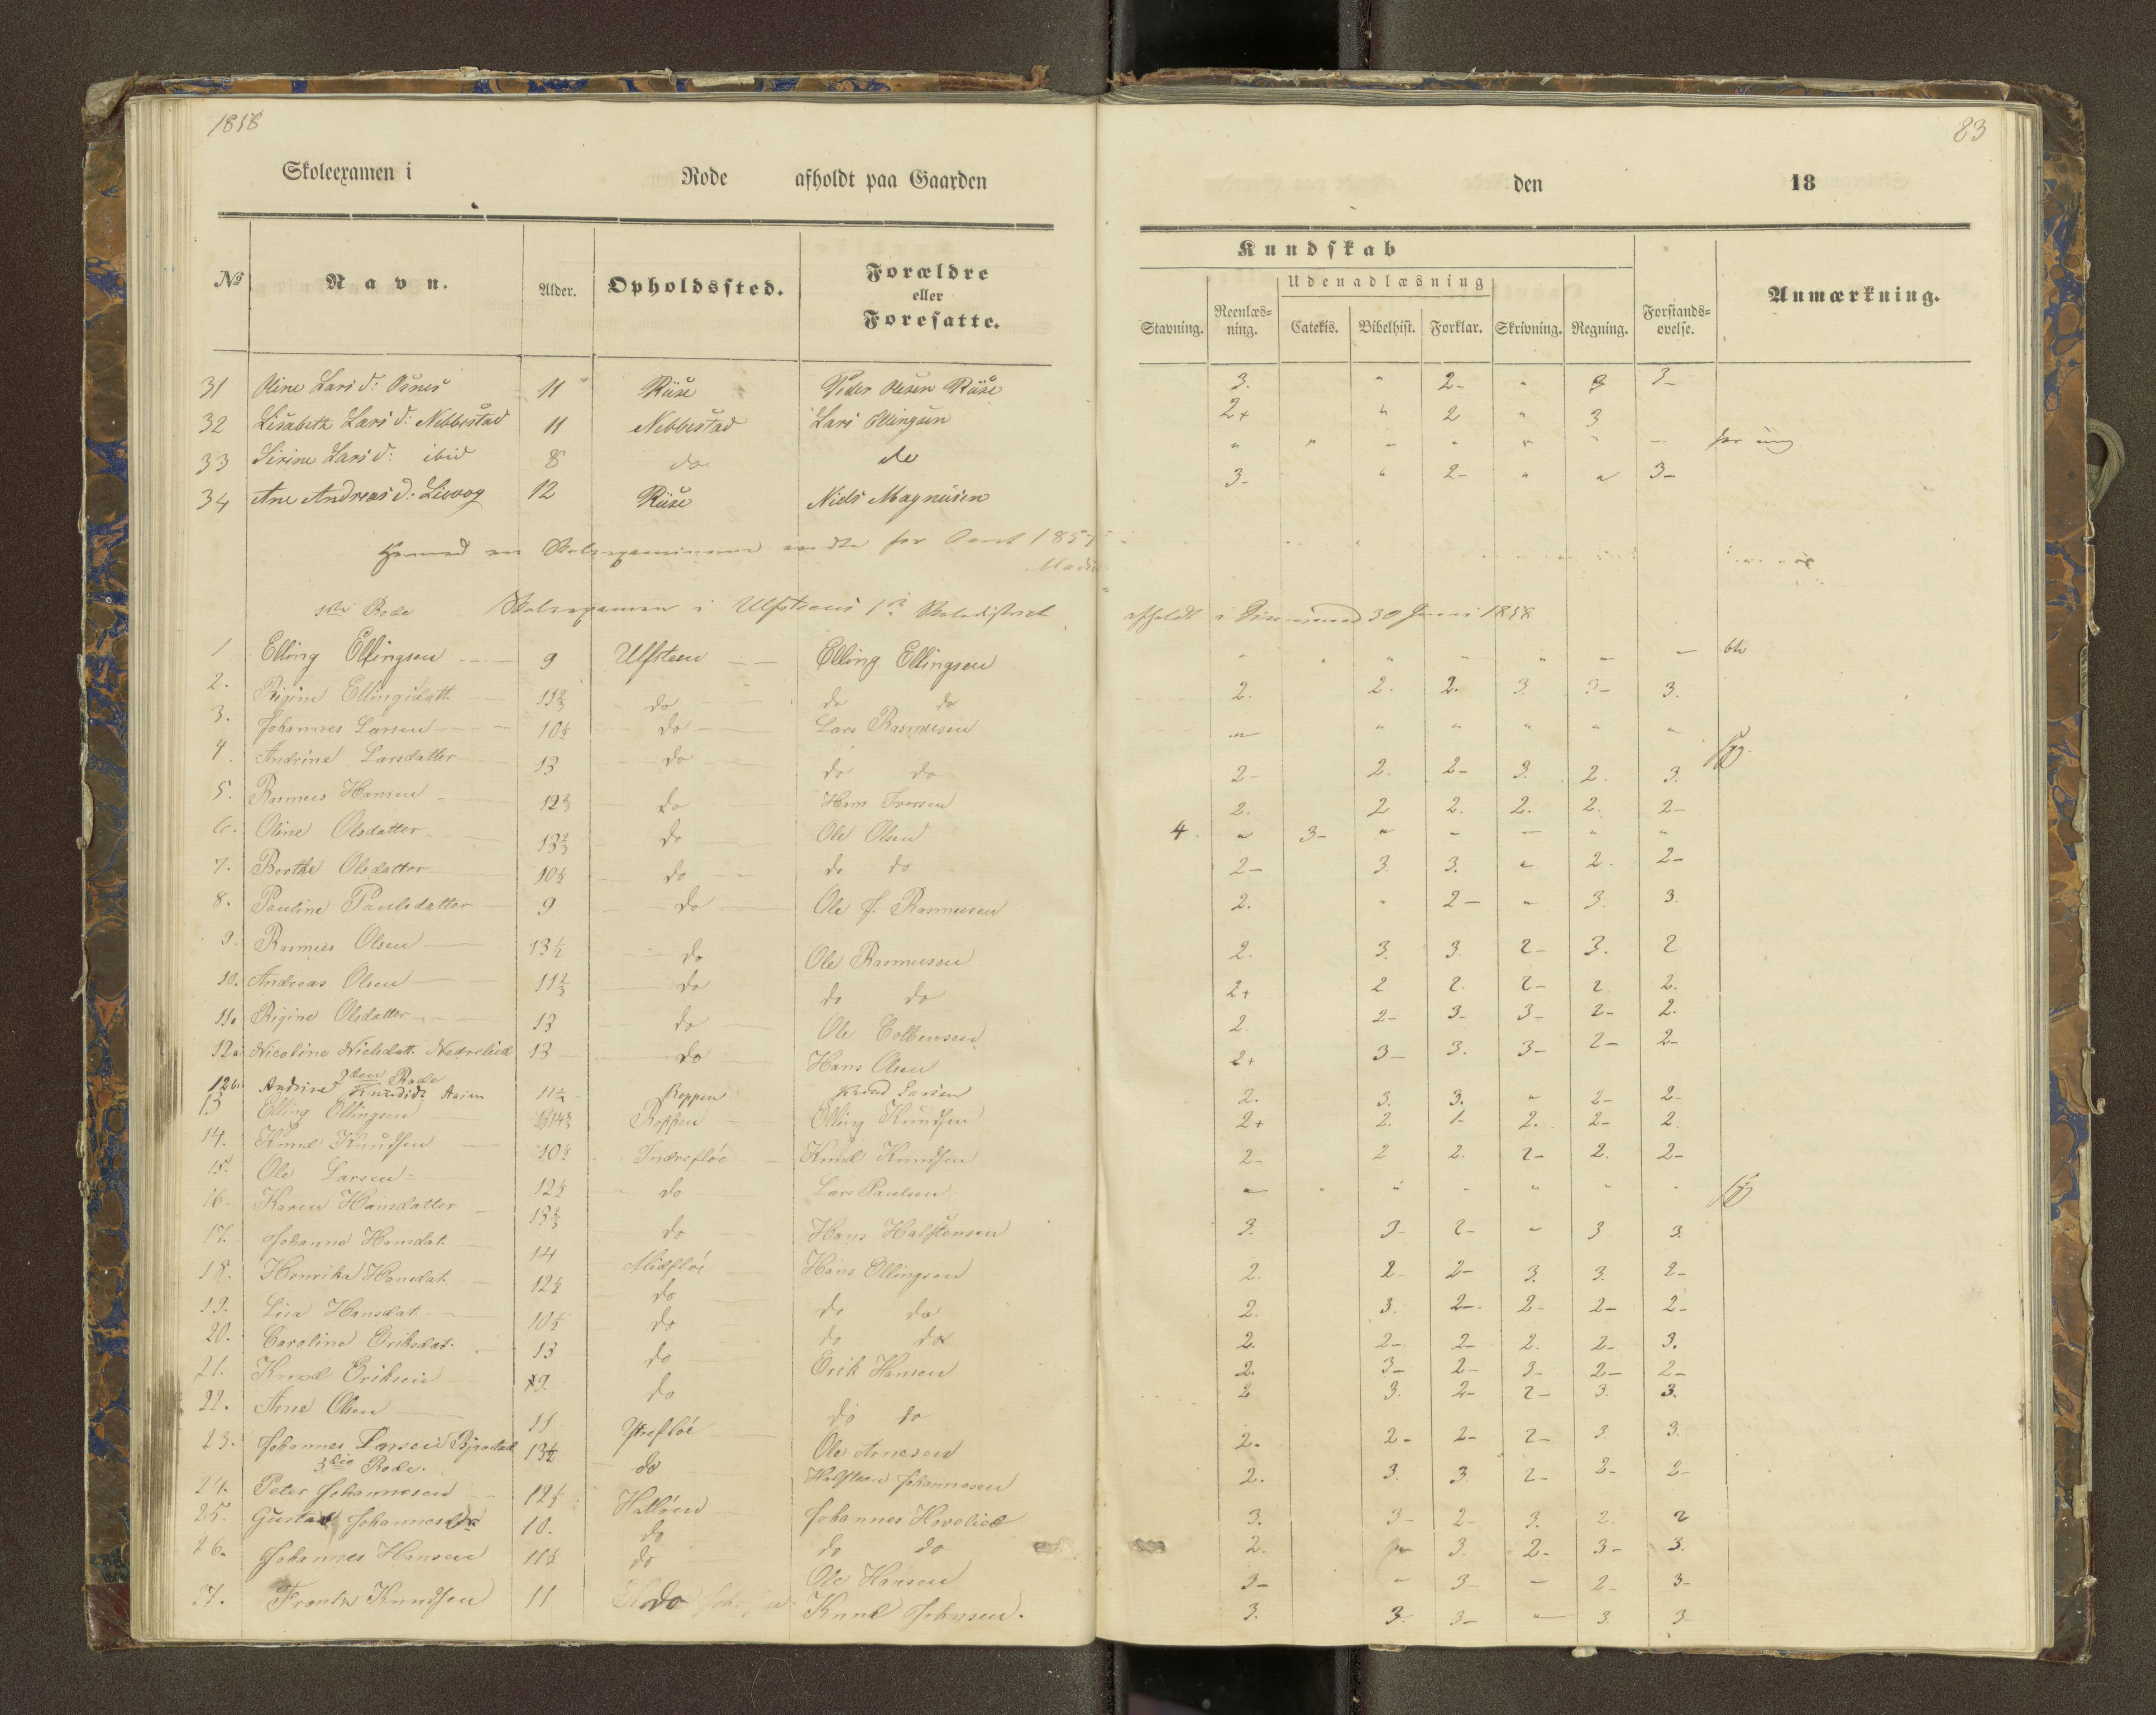 1858
83
Skoleexamen i Rode afholdt paa Gaarden den 18
Kundskab
Udenadlæsning
№ Navn. Alder. Opholdssted. Forældre eller Foresatte. Stavning. Reenlæs-ning. Catekis. Bibelhist. Forklar. Skrivning. Regning. Forstands-øvelse. Anmærkning.
31 Oline Larsd: Osnes 11 Riise Peder Olesen Riise 3. " 2- " 3 3-
32 Lisabeth Larsd: Nebbestad 11 Nebbestad Lars Ellingsen 2+ " 2 " 3
33 Sirine Larsd: ibid 8 do do " " - " " " - for ung
34 Ane Andreasd: Lievog 12 Riise Niels Magnusen 3- " 2- " " 3-
Hermed er Skoleexaminerne endte for Aaret 1857
1ste Rode Skoleexamen i Ulfsteens 1ste Skoledistrict afholdt i Dimmen d 30 Juni 1858
1 Elling Ellingsen 9 Ulfsteen Elling Ellingsen - " " - " - -
2. Rigine Ellingsdatt. 11 2/3 do do do 2. 2. 2. 3. 3- 3.
3. Johannes Larsen 10 1/2 do Lars Rasmusen " " " " " "
4. Andrine Larsdatter 13 do do do 2- 2. 2- 3. 2. 3.
5. Rasmus Hansen 12 2/3 do Hans Iversen 2. 2 2. 2. 2. 2-
6. Oline Olsdatter 13 2/3 do Ole Olsen 4. " 3- " - - " "
7. Berthe Olsdatter 10 1/2 do do do 2- 3. 3. " 2. 2-
8. Pauline Paulsdatter 9 do Ole J. Rasmusen 2. " 2- " 3. 3.
9. Rasmus Olsen 13 1/2 do Ole Rasmusen 2. 3. 3. 2- 3. 2
10. Andreas Olsen 11 2/3 do do do 2+ 2 2. 2- 2. 2.
11. Rigine Olsdatter 13 do Ole Colbensen 2. 2- 3- 3- 2- 2.
12a Nicoline Nielsdatt. Nedrelied 13 do Hans Olsen 2+ 3- 3. 3- 2- 2-
2den Rode
12b. Andrine Knudsd: Aasen 11 1/2 Roppen Knud Larsen 2. 3. 3. " 2- 2-
13 Elling Ellingsen 14 2/3 Roppen Elling Knudsen 2+ 2. 1- 2. 2- 2
14. Knud Knudsen 10 1/2 Indrefløe Knud Knudsen 2- 2 2. 2- 2. 2-
15. Ole Larsen 12 1/2 do Lars Paulsen " " " - " " "
16. Karen Hansdatter 13 1/3 do Hans Halstensen 3. 3- 2- " 3 3.
17. Johanne Hansdat. 14 Midfløe Hans Ellingsen 2. 2- 2- 3. 3. 2-
18. Henrika Hansdat. 12 1/2 do do do 2. 3. 2- 2- 2- 2-
19. Lisa Hansdat. 10 1/2 do do do 2. 2- 2- 2. 2- 3.
20. Caroline Eriksdat. 13 do Erik Hansen 2. 3- 2- 3- 2- 2-
21. Knud Eriksen 9. do do do 2 3. 2- 2- 3. 3.
22. Arne Olsen 11 Ytrefløe Ole Arnesen 2. 2- 2- 2- 3. 3.
23. Johannes Larsen Bjaastad 13 1/2 do Halsteen Johannesen 2. 3. 3. 2- 2- 2-
3die Rode.
24. Peter Johannesen 12 1/2 Hatløen Johannes Hovelied 3. 3- 2- 3. 2. 2
25. Gustav Johannes 10. do do do 2. " 3. 2- 3- 3.
26. Johannes Hansen 11 1/2 do Ole Hansen 3- - 3- - 2- 3-
27. Frants Knudsen 11 do Knud Johnsen. 3. 3. 3- " 3. 3